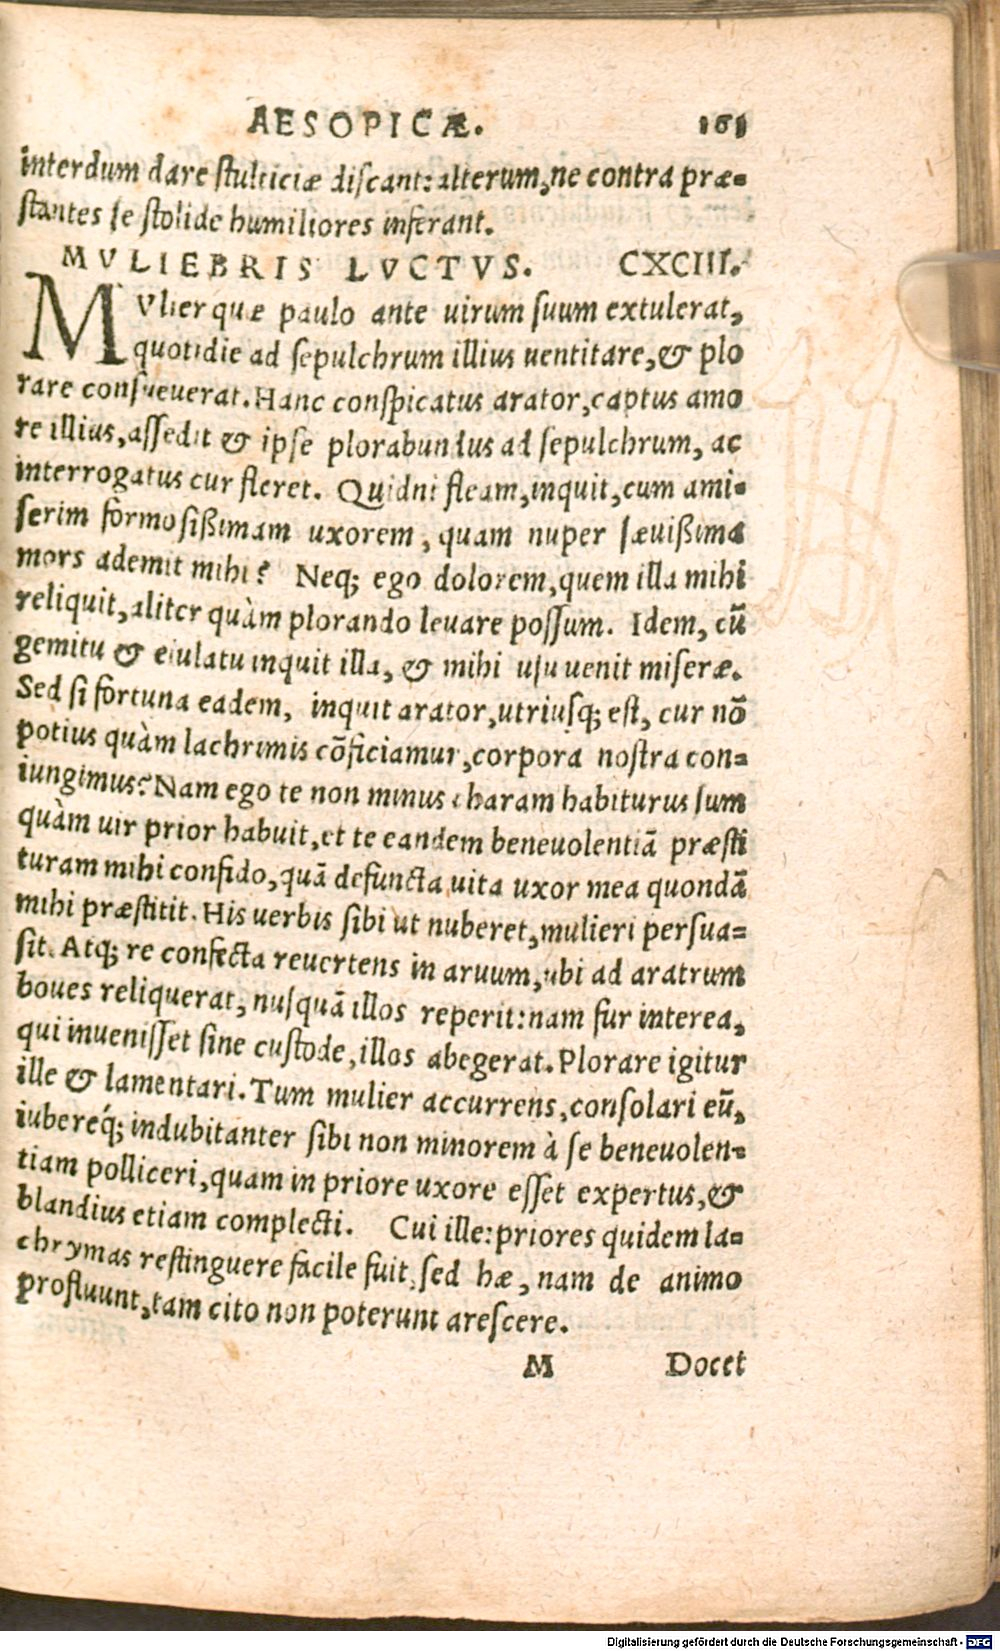 AESOPICÆ. 161
interdum dare stulticiæ discant: alterum, ne contra præ-
stantes se stolide humiliores inferant.
MVLIEBRIS LVCTVS. CXCIII.
MVlier quæ paulo ante uirum suum extulerat,
quotidie ad sepulchrum illius uentitare, & plo
rare consueuerat. Hanc conspicatus arator, captus amo
re illius, assedit & ipse plorabundus ad sepulchrum, ac
interrogatus cur fleret. Quidni fleam, inquit, cum ami-
serim formosißimam uxorem, quam nuper sæuißima
mors ademit mihi? Neq; ego dolorem, quem illa mihi
reliquit, aliter quàm plorando leuare possum. Idem, cū
gemitu & eiulatu inquit illa, & mihi usu uenit miseræ.
Sed si fortuna eadem, inquit arator, utriusq; est, cur nō
potius quàm lachrimis cōficiamur, corpora nostra con-
iungimus? Nam ego te non minus charam habiturus sum
quàm uir prior habuit, et te eandem beneuolentiā præsti
turam mihi confido, quā defuncta uita uxor mea quondā
mihi præstitit. His uerbis sibi ut nuberet, mulieri persua-
sit. Atq; re confecta reuertens in aruum, ubi ad aratrum
boues reliquerat, nusquā illos reperit: nam fur interea,
qui inuenisset sine custode, illos abegerat. Plorare igitur
ille & lamentari. Tum mulier accurrens, consolari eū,
iubereq́; indubitanter sibi non minorem à se beneuolen-
tiam polliceri, quam in priore uxore esset expertus, &
blandius etiam complecti. Cui ille: priores quidem la-
chrymas restinguere facile fuit, sed hæ, nam de animo
profluunt, tam cito non poterunt arescere.
M Docet
Digitalisierung gefördert durch die Deutsche Forschungsgemeinschaft - DFG